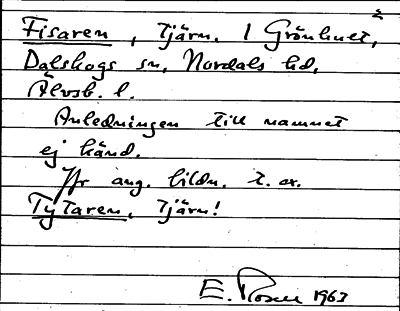 Fisaren, tjärn. I Grönhult,
Dalskogs sn, Nordals hd,
Älvsb. l.
Anledningen till namnet
ej känd.
Jfr ang. bildn. t. ex.
Tytaren, tjärn!
E. Rosell 1963